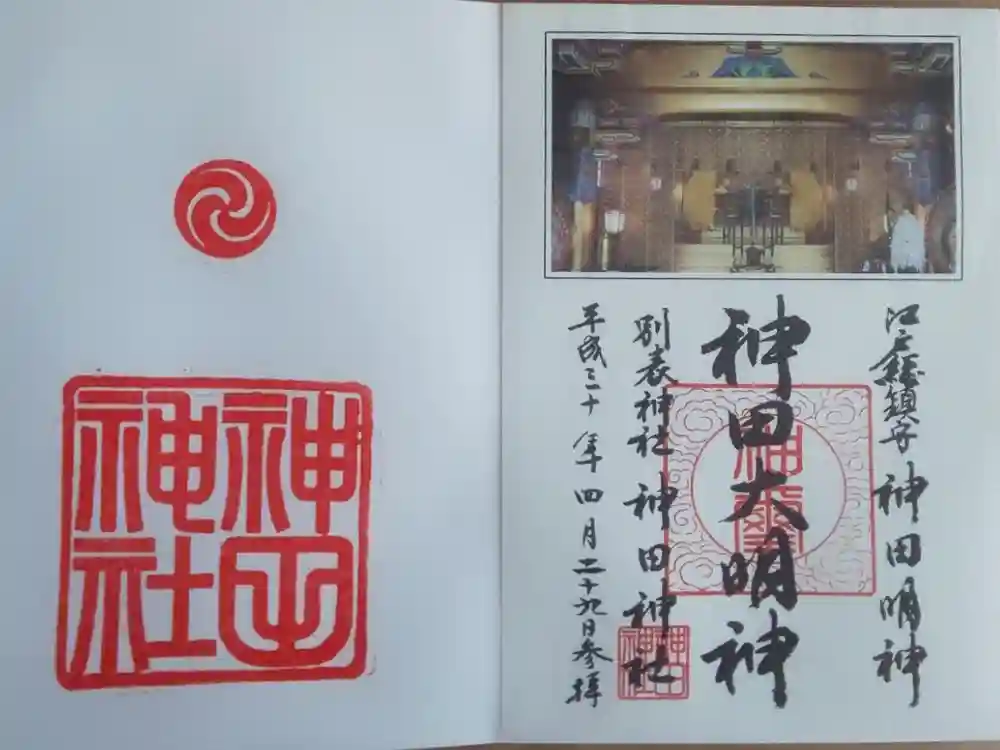 江戸総鎮守 神田明神
神田大明神
別表神社 神田神社
平成三十年四月二十九日参拝
神田神社
神田神社